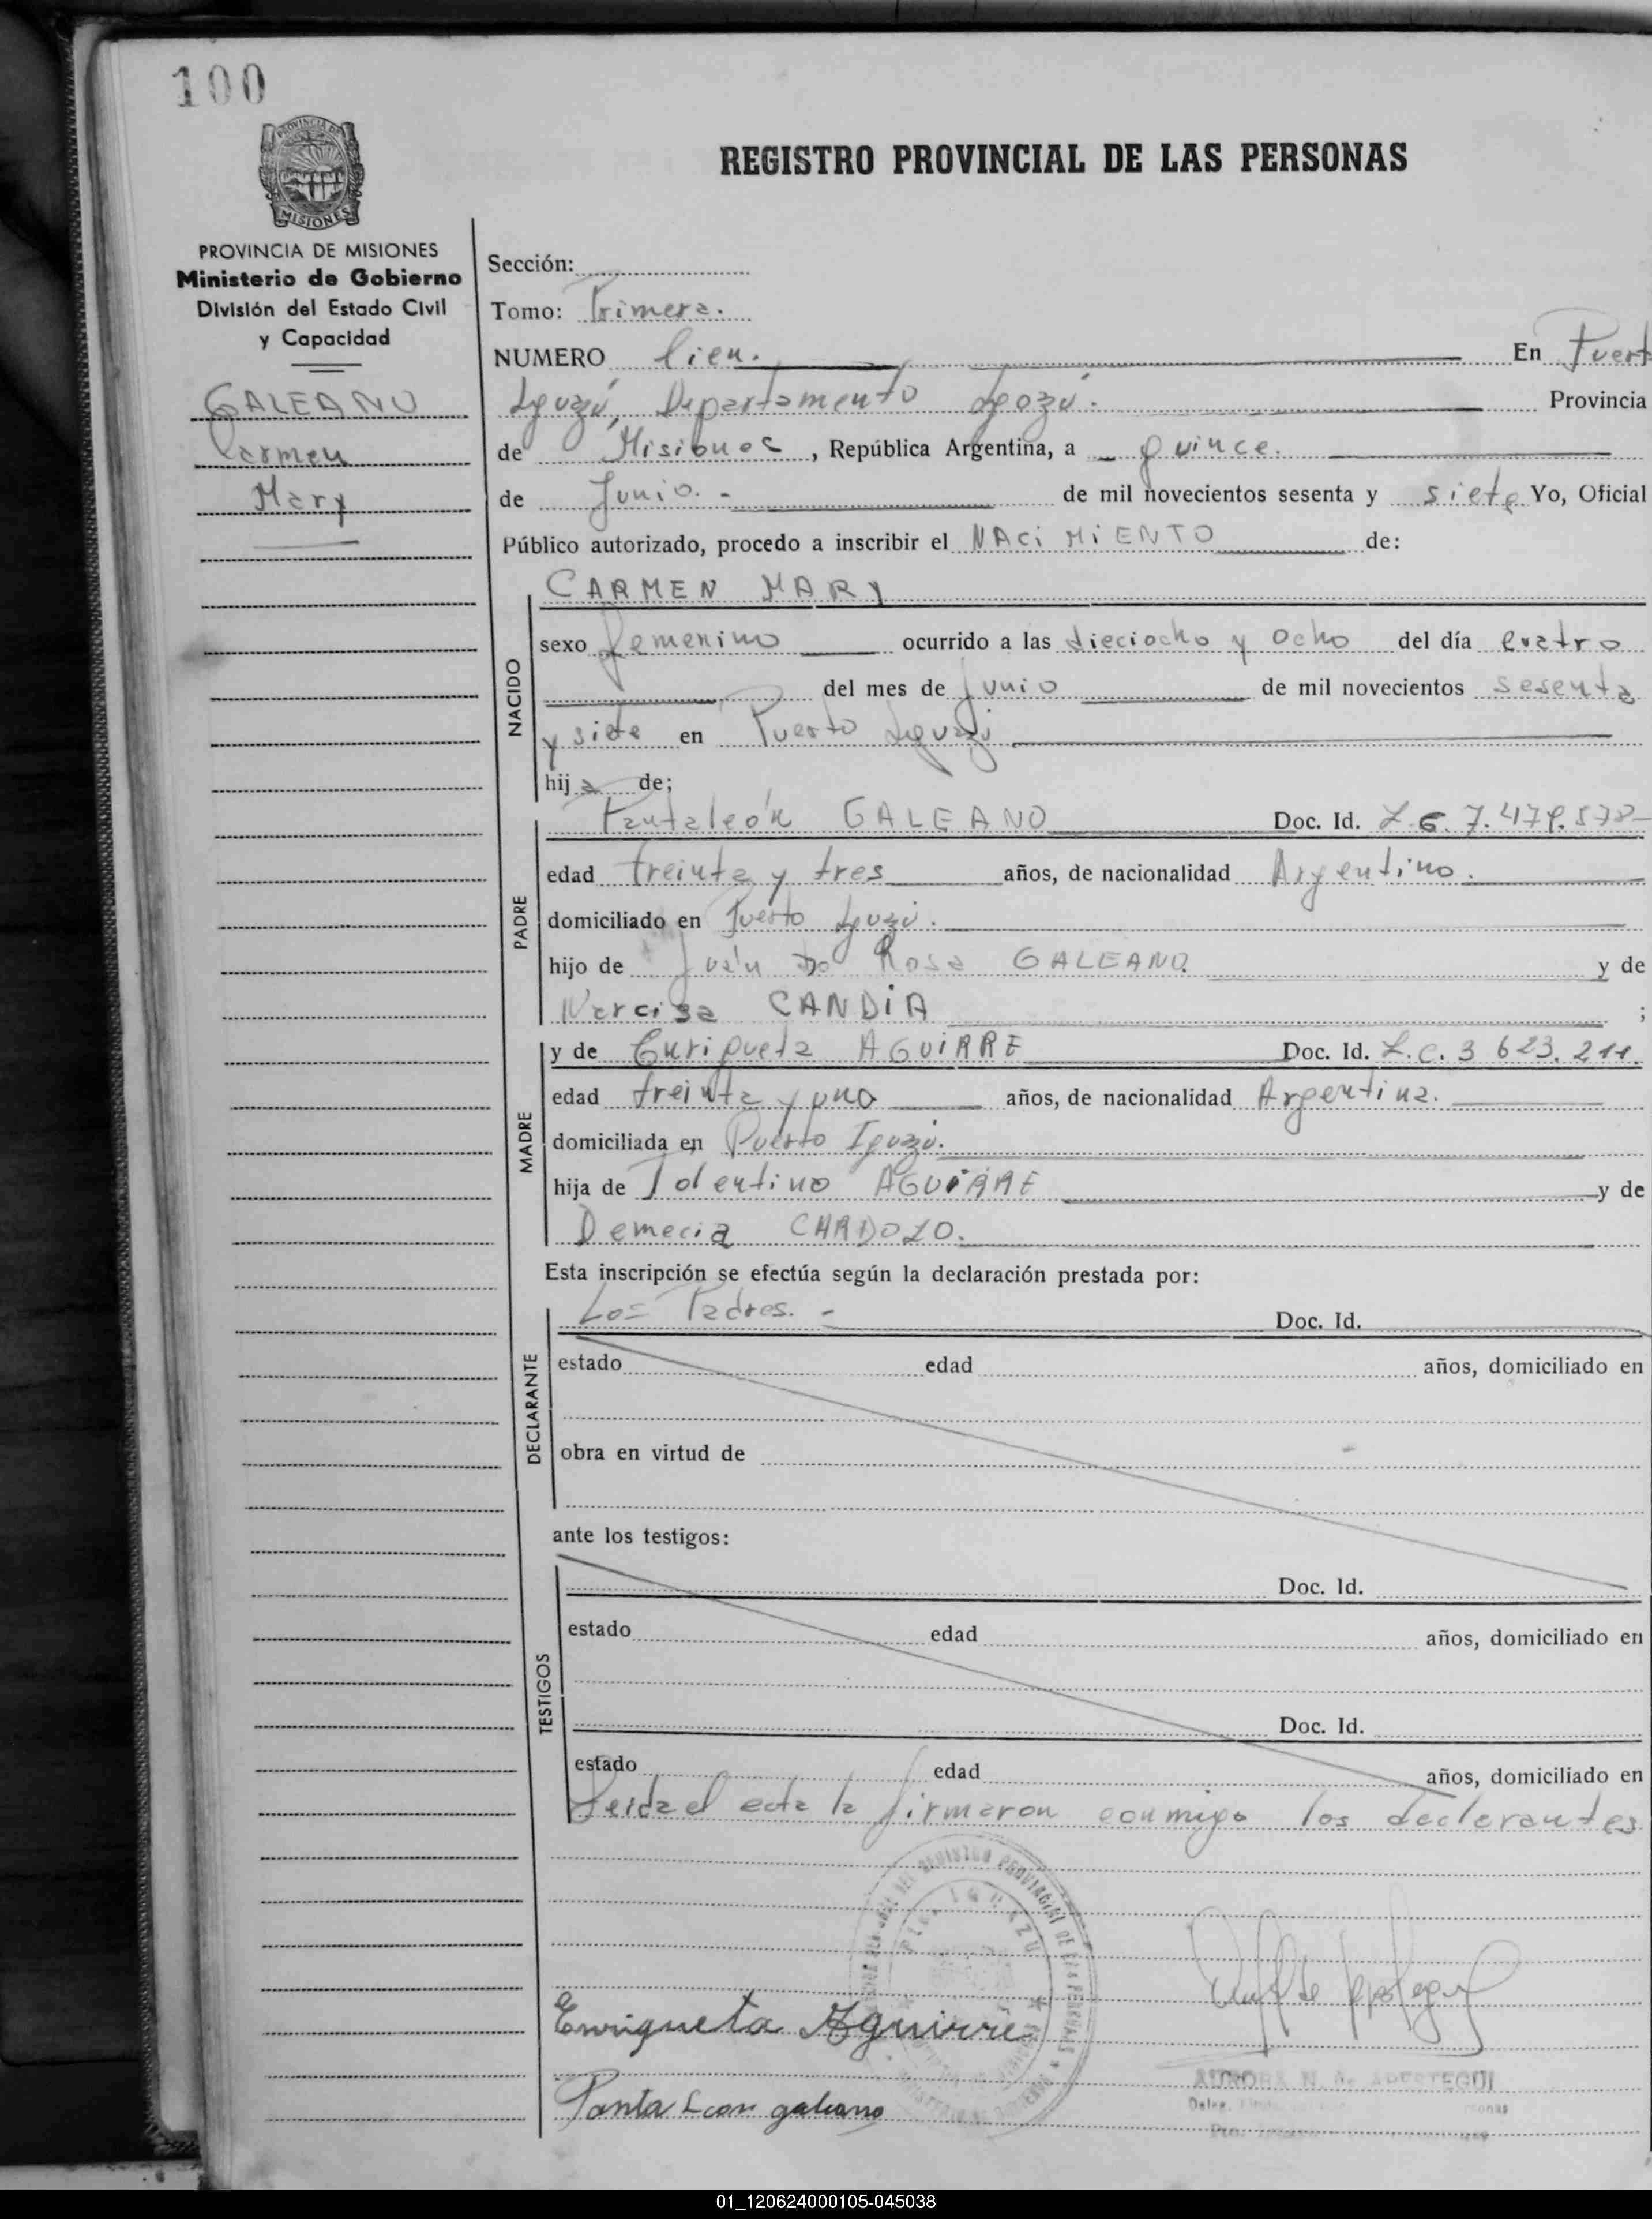 100
PROVINCIA DE
MISIONES
REGISTRO PROVINCIAL DE LAS PERSONAS
PROVINCIA DE MISIONES
Ministerio de Gobierno
División del Estado Civil
y Capacidad
GALEANO
Carmen
Mary
Sección:
Tomo: Primera.
NUMERO Cien. En Puert
Iguazú, Departamento Iguazú. Provincia
de Misiones, República Argentina, a quince.
de Junio. - de mil novecientos sesenta y siete Yo, Oficial
Público autorizado, procedo a inscribir el NACiMiENTO de:
NACIDO
CARMEN MARY
sexo femenino ocurrido a las dieciocho y ocho del día cuatro
del mes de Junio de mil novecientos sesenta
y siete en Puerto Iguazú
hija de;
PADRE
Pantaleón GALEANO Doc. Id.
edad treinta y tres años, de nacionalidad Argentino.
domiciliado en Puerto Iguazú.
hijo de Juán Rosa GALEANO y de
Narcisa CANDiA ;
MADRE
y de Enriqueta AGUiRRE Doc. Id. L.C. 3 623.211.
edad treinta y uno años, de nacionalidad Argentina.
domiciliada en Puerto Iguazú.
hija de Tolentino AGUiRRE y de
Demecia CARDOZO.
Esta inscripción se efectúa según la declaración prestada por:
DECLARANTE
Los Padres. - Doc. Id.
estado edad años, domiciliado en
obra en virtud de
ante los testigos:
TESTIGOS
Doc. Id.
estado edad años, domiciliado en
Doc. Id.
estado edad años, domiciliado en
Leida el acta la firmaron conmigo los declarantes
REGISTRO PROVINCIAL DE LAS PERSONAS
IGUAZU
Enriqueta Aguirre
Panta Leon galeano
AURORA N. de APESTEGUI
01_120624000105-045038